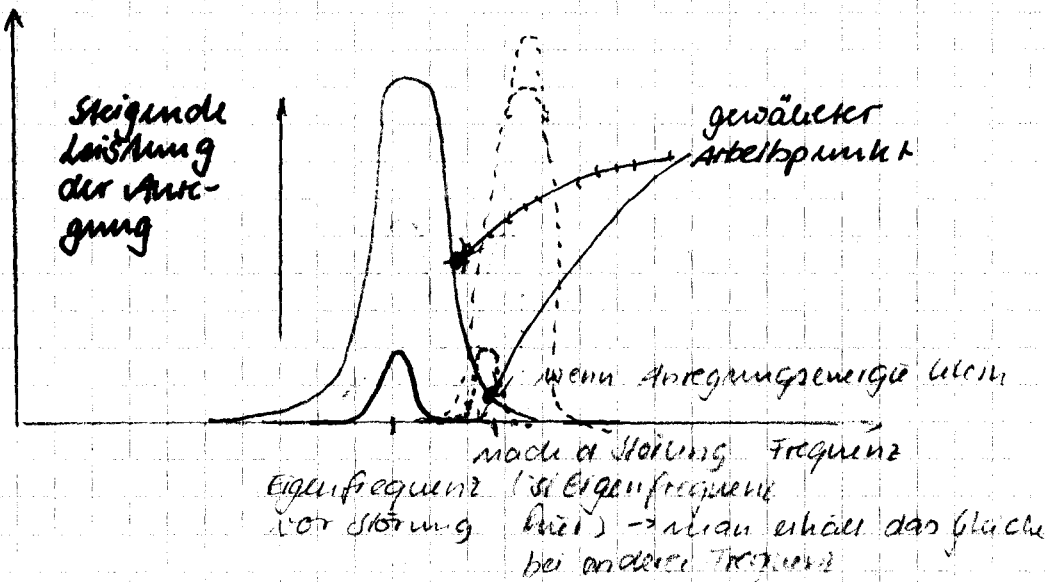 Steigende
Leistung
der Anre-
gung
gewählter
Arbeitspunkt
wenn Anregungsenergie klein
nach d Störung Frequenz
Eigenfrequenz (ist Eigenfrequenz
vor Störung hier) → man erhält das Gleiche
bei anderer Frequenz